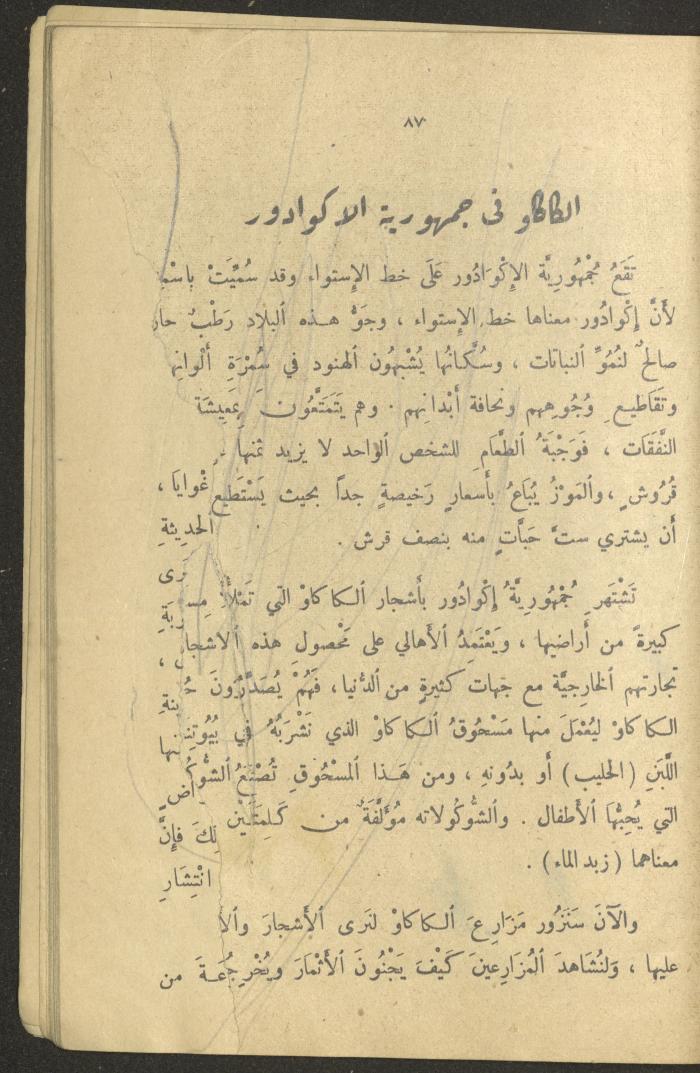 ٨٧
الكاكاو في جمهورية الاكوادور
تَقَعُ جُمْهُورِيَّة الإِكْوَادُور عَلَى خط الإِستواء وقد سُمِّيَتْ بِاسْمِ
لأَنَّ إِكْوادُور معناها خط الإِستواء ، وجَوُّ هـذه ٱلبلاد رَطْبٌ حار
صالحٌ لنُمُوِّ ٱلنباتات ، وسُكَّانُها يُشْبِهُون ٱلهنود في سُمْرَةِ أَلْوانِها
وتقَاطيعِ وُجُوهِهم ونَحافة أَبْدانِهم . وهم يَتَمَتَّعُونَ بِمَعِيشَة
النَّفَقَات ، فَوَجْبَةُ ٱلطَّعَامِ للشخص ٱلواحد لا يزيد ثمنها
قُرُوشٍ ، وٱلمَوْزُ يُبَاعُ بأَسعارٍ رَخيصةٍ جداً بحيث يَسْتَطيع
غْوايَا ،
أَن يشتري ستَّ حَبَّاتٍ منه بنصف قرش .
الحديثةِ
رى
تَشْتَهر جُمْهُورِيَّةُ إِكْوادُور بأَشجار ٱلكاكاوْ الَّتي تَمْلَأُ مِسـ
ربَةٍ
كبيرةً من أَراضيها ، ويَعْتَمِدُ ٱلأَهالي على مَحْصولِ هذه ٱلاشجار
تجارتهم ٱلخارجيَّة مع جِهات كثيرةٍ من ٱلدُّنيا ، فَهُمْ يُصَدِّرُونَ حُـ
ينة
الكاكاوْ ليُعْمَلَ منها مَسْحُوقُ ٱلكاكاوْ الذي نَشْرَبُهُ في بُيُوتِنا
نها
اللَّبَنِ (الحليب) أَو بِدُونهِ ، ومن هَـذا ٱلمسْحُوقِ تُصْنَعُ ٱلشُّوكُـ
اضِ
التي يُحِبُّها ٱلأَطفال . وٱلشُّوكُولاته مُؤَلَّفَةٌ من كَلِمَتَيْنِ
لِكَ فإِنَّ
معناهما (زبد الماء) .
انْتِشَارِ
والآنَ سَنَزُور مَزَارِعَ ٱلكاكاوْ لنَرى ٱلأَشجارَ وٱلا
عليها ، وَلنُشَاهدَ ٱلمُزَارِعينَ كَيْفَ يَجْنُونَ ٱلأَثْمارَ ويُخْرِجُـ
عَـةَ من